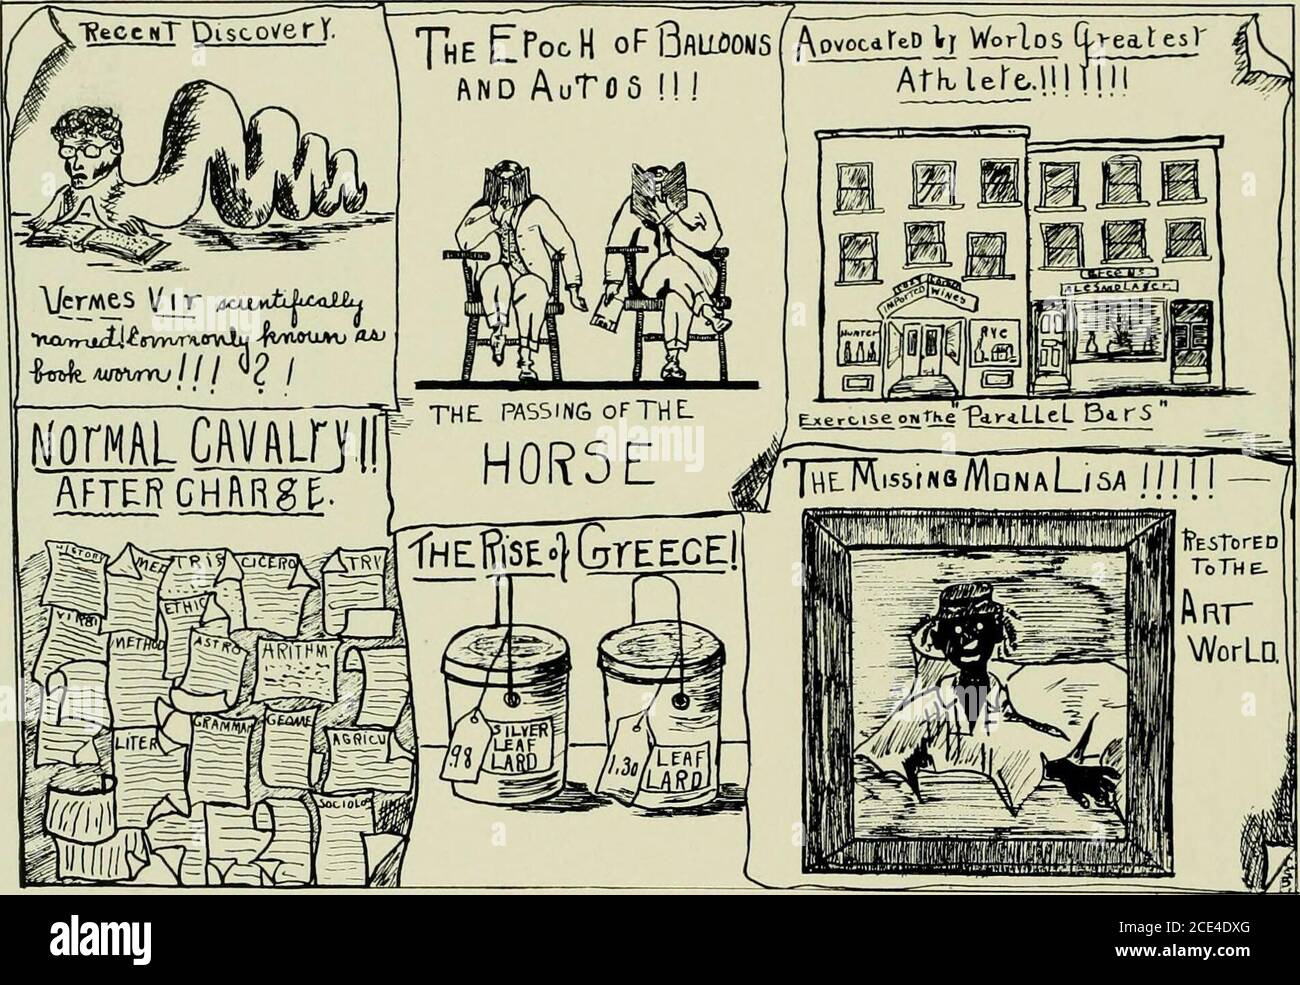 Recent Discovery.
Vermes Vir scientifically
named! Commonly known as
book worm!!! ? !
THE EPocH OF BALLOONS
AND AUTOS !!!
TEST
THE PASSING OF THE
HORSE
Advocated by Worlds Greatest
Athlete.!!!!!!!
IMPORTED WINES
HUNTER
RYE
ALES AND LAGER
Exercise on the "Parallel Bars"
NORMAL CAVALrY!!
AFTER CHARGE.
HISTORY
MED
TRIG
CICERO
TRY
VIRGI
ETHIC
METHOD
ASTRO
ARITHM
LITER
GRAMMA
GEOME
AGRICU
SOCIOLO
THE RISE of GrEECE!
.98
SILVER
LEAF
LARD
1.30
LEAF
LARD
THE MISSING MONA LISA !!!!!
RESTORED
TO THE
ART
WORLD.
alamy
Image ID: 2CE4DXG
www.alamy.com